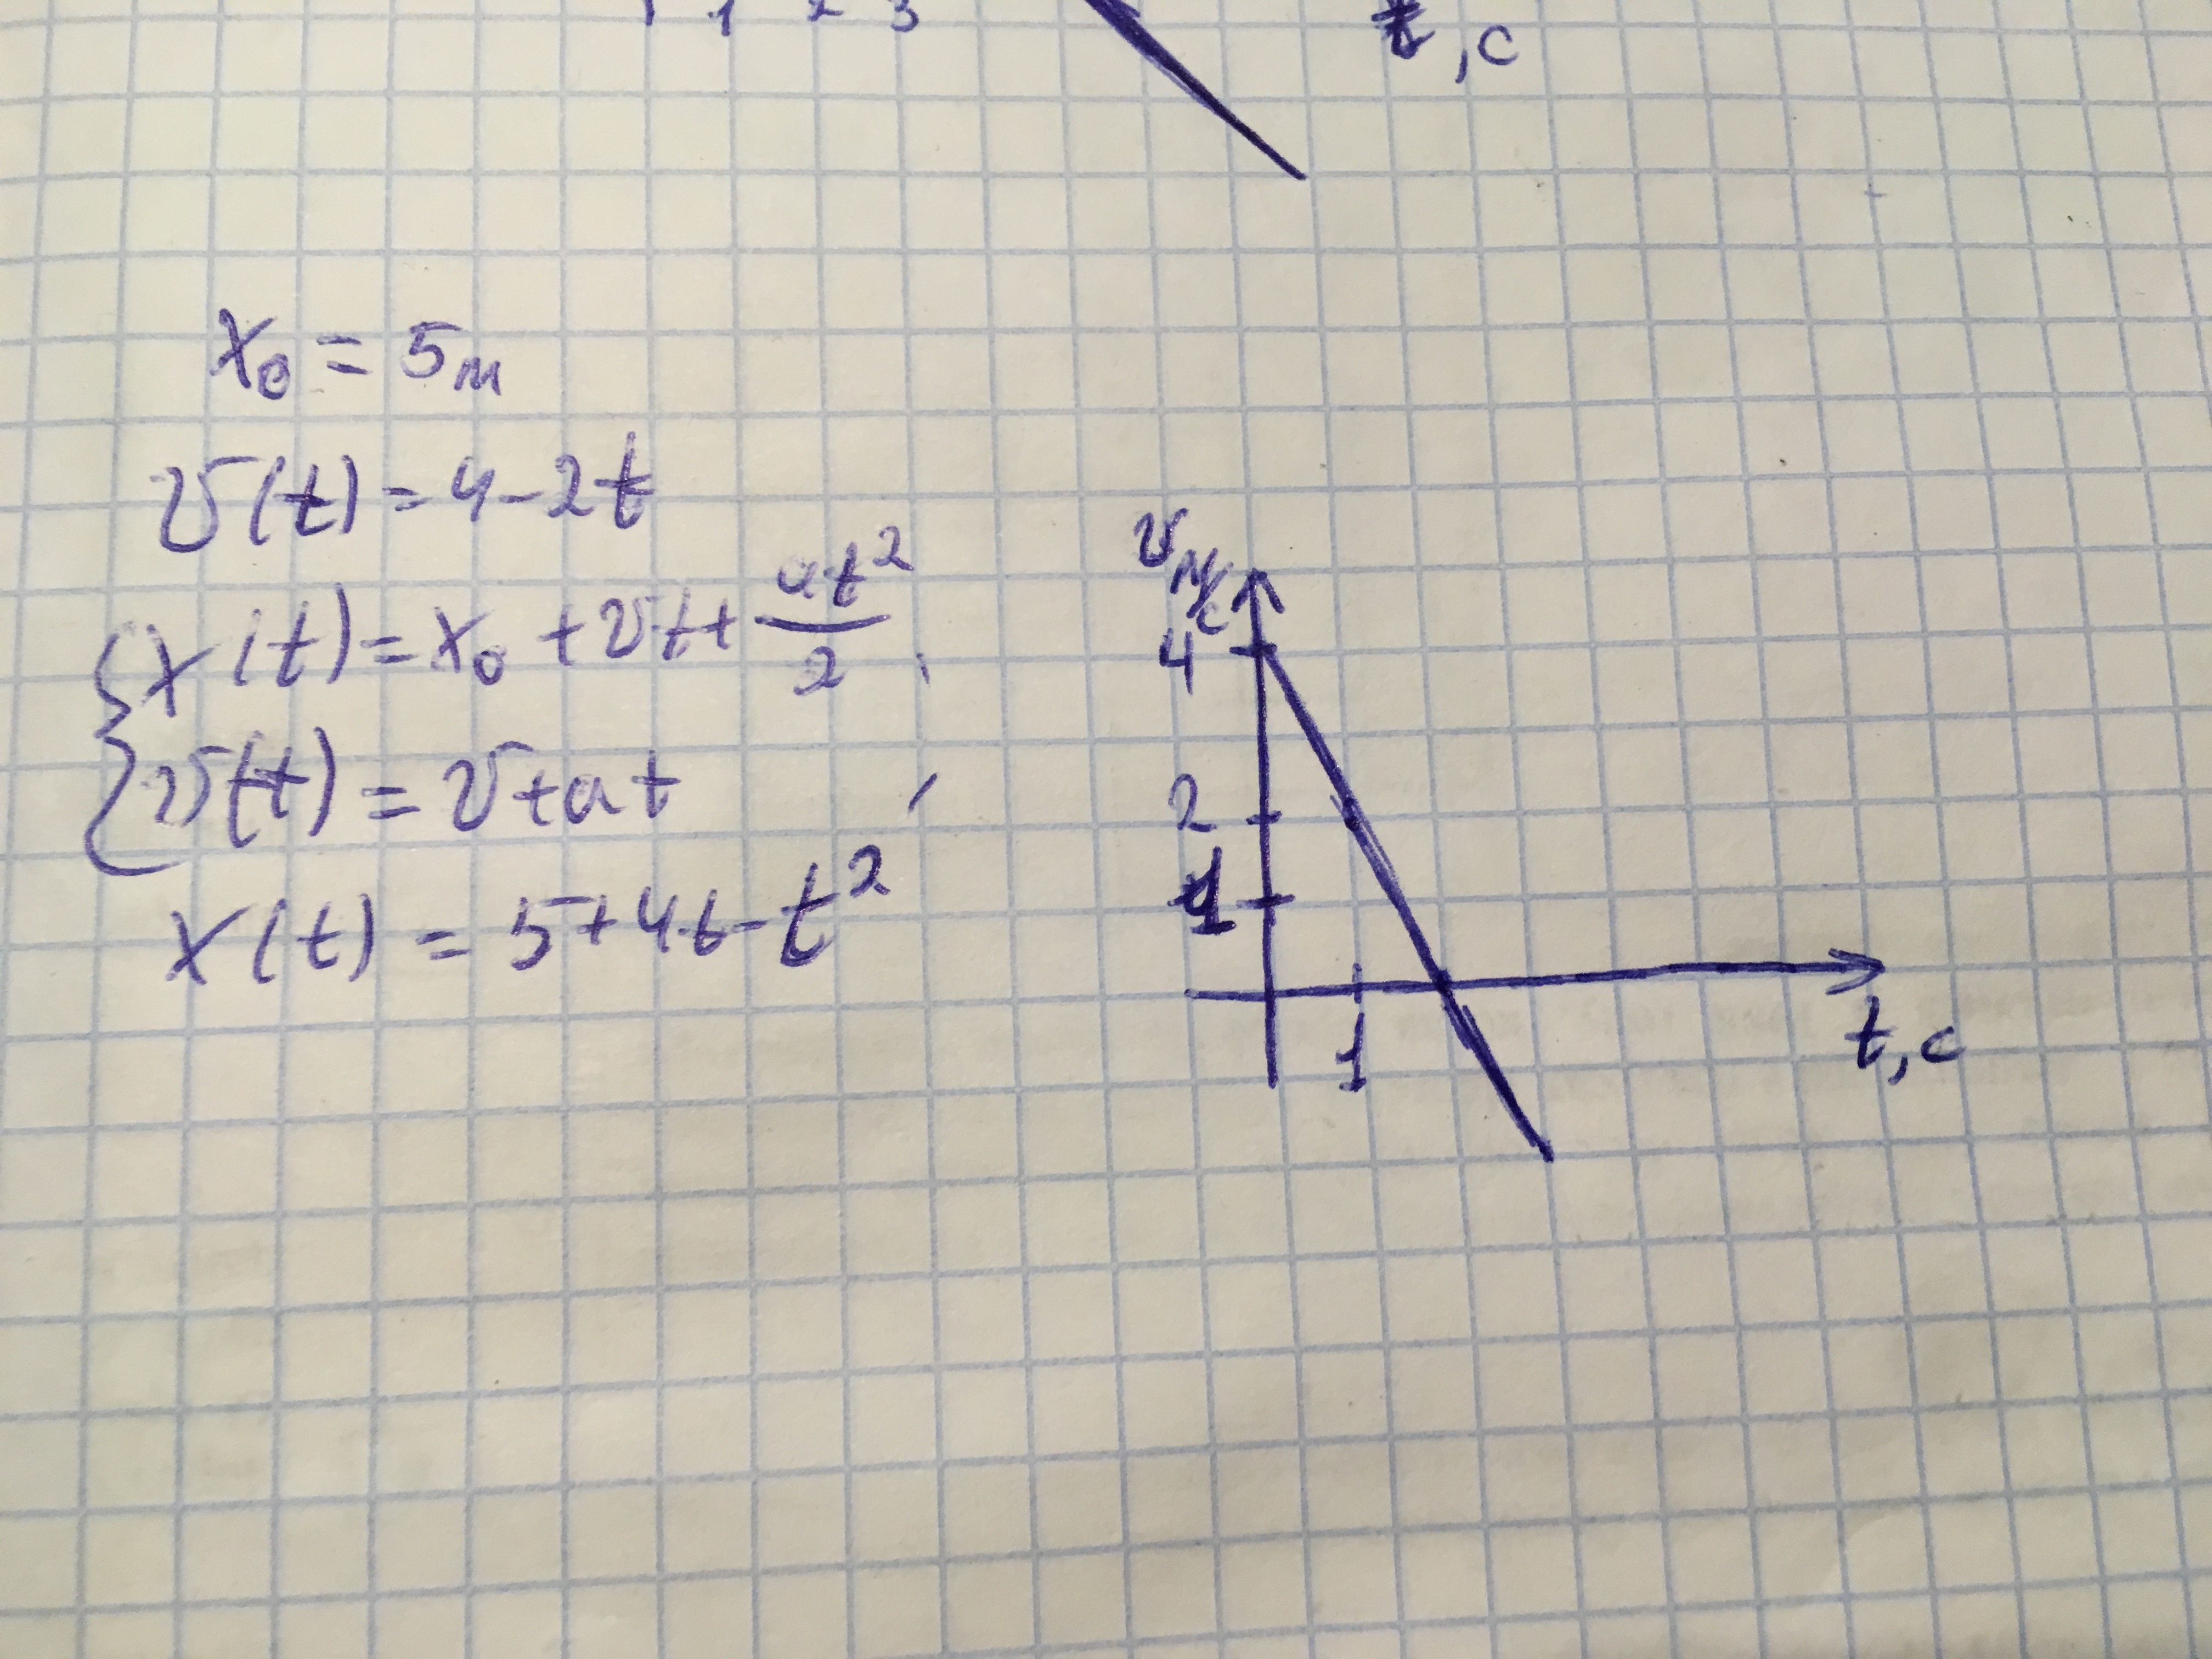 1 2 3
t, c
x₀ = 5м
v(t) = 4 - 2t
x(t) = x₀ + vt + at²/2
v(t) = v + at
x(t) = 5 + 4t - t²
v м/с
4
2
1
1
t, c